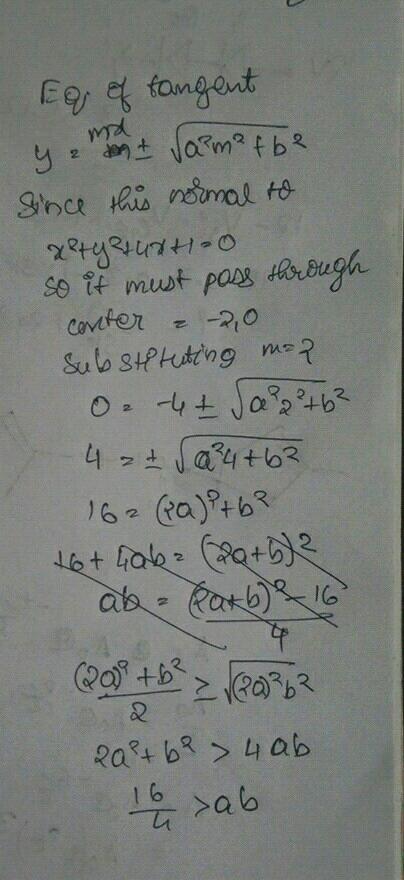 Eq. of tangent
y = mx ± √a²m² + b²
Since this normal to
x²+y²+4x+1=0
so it must pass through
center = -2,0
Substituting m=2
0 = -4 ± √a²2²+b²
4 = ± √a²4+b²
16 = (2a)²+b²
16 + 4ab = (2a+b)²
ab = (2a+b)² - 16 / 4
(2a)² + b² / 2 ≥ √(2a)²b²
2a²+b² > 4ab
16/4 > ab